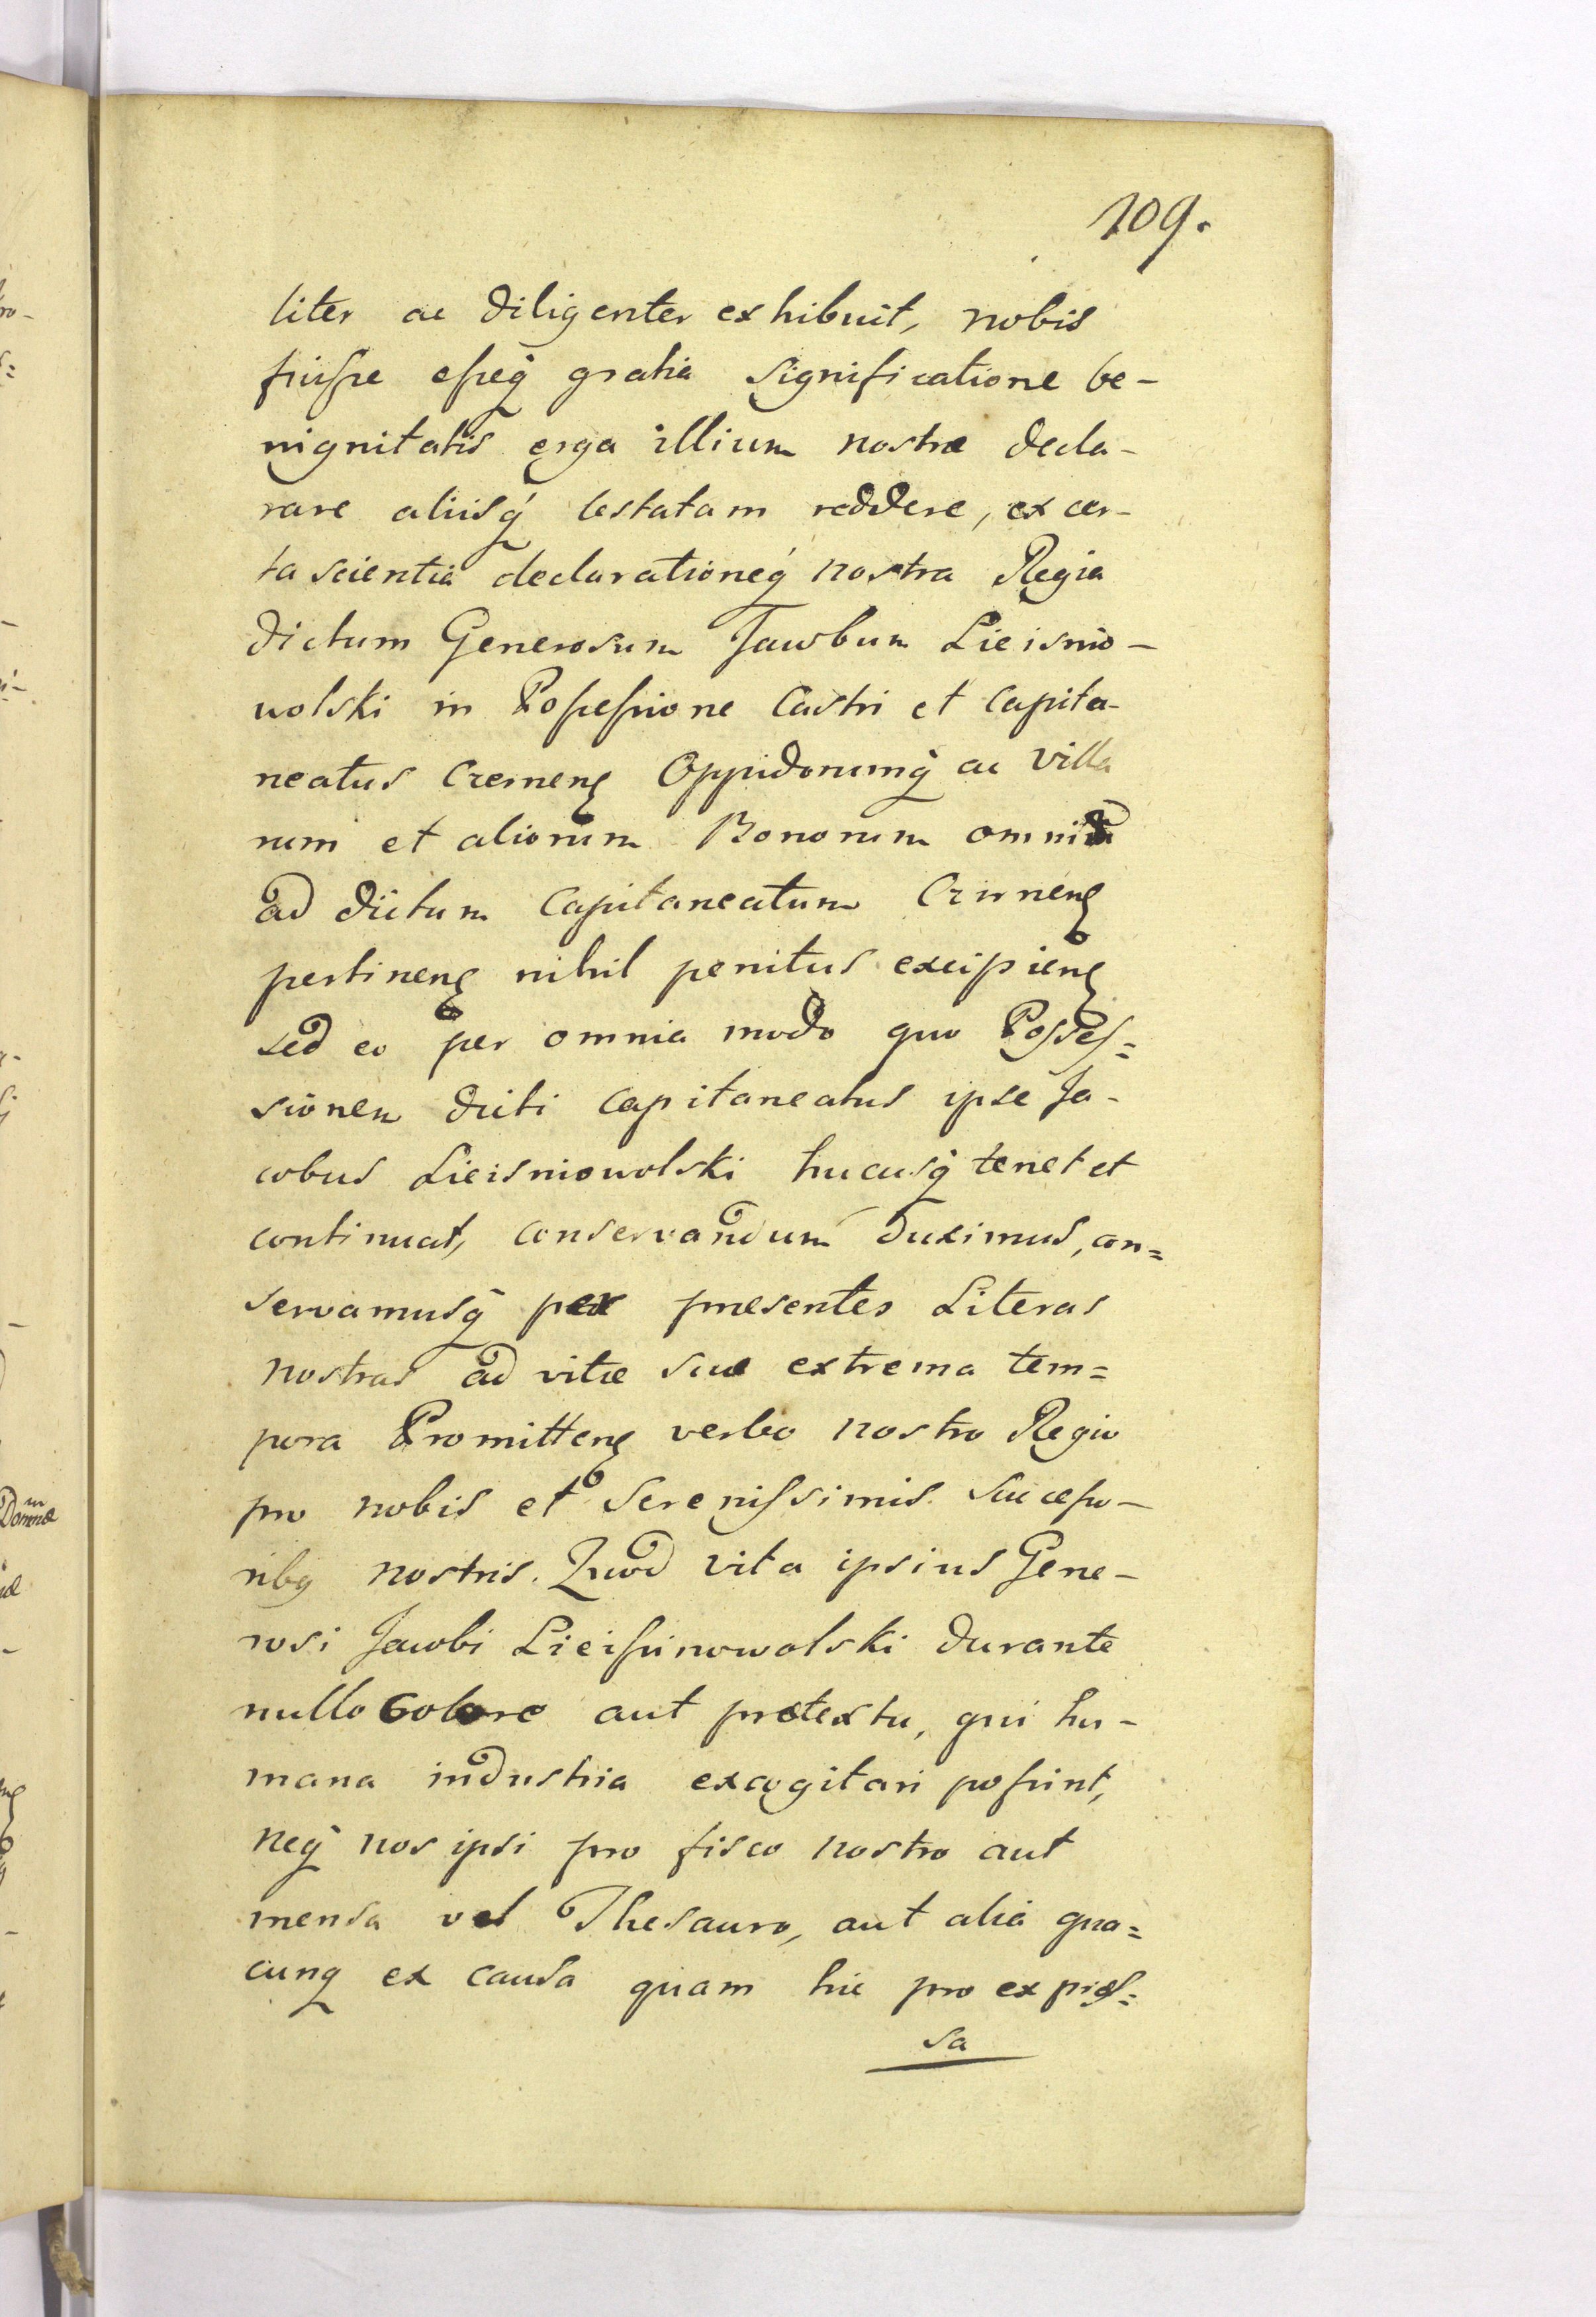 109.
liter ac diligenter exhibuit, nobis
fuisse esseq́ gratia significatione be-
nignitatis erga illium nostræ decla-
rare aliisq́ testatam reddere, ex cer-
ta scientia declarationeq́ nostra Regia
dictum Generosum Jacobum Lieisnio-
wolski in Possessione Castri et Capita-
neatus Cremenę Oppidorumq́ ac Villa
rum et aliorum Bonorum omniū
ad dictum Capitaneatum
pertinenę nihil penitus excipienę
sed eo per omnia modo quo Posses=
sionem dicti Capitaneatus ipse Ja-
cobus Lieisniowolski hucusq́ tenet et
continuat, conservandum duximus, con=
servamusq́ per presentes Literas
nostras ad vitæ suæ extrema tem=
pora Promittenę verbo nostro Regio
pro nobis et Serenissimis. Successo-
ribq nostris. Quod vita ipsius Gene-
rosi Jacobi Lieissniowolski durante
nullo Colore aut prætextu, qui hu-
mana industria excogitari possint,
neq́ nos ipsi pro fisco nostro aut
mensa vel Thesauro, aut alia qua=
cunq ex causa quam hic pro expres=
sa